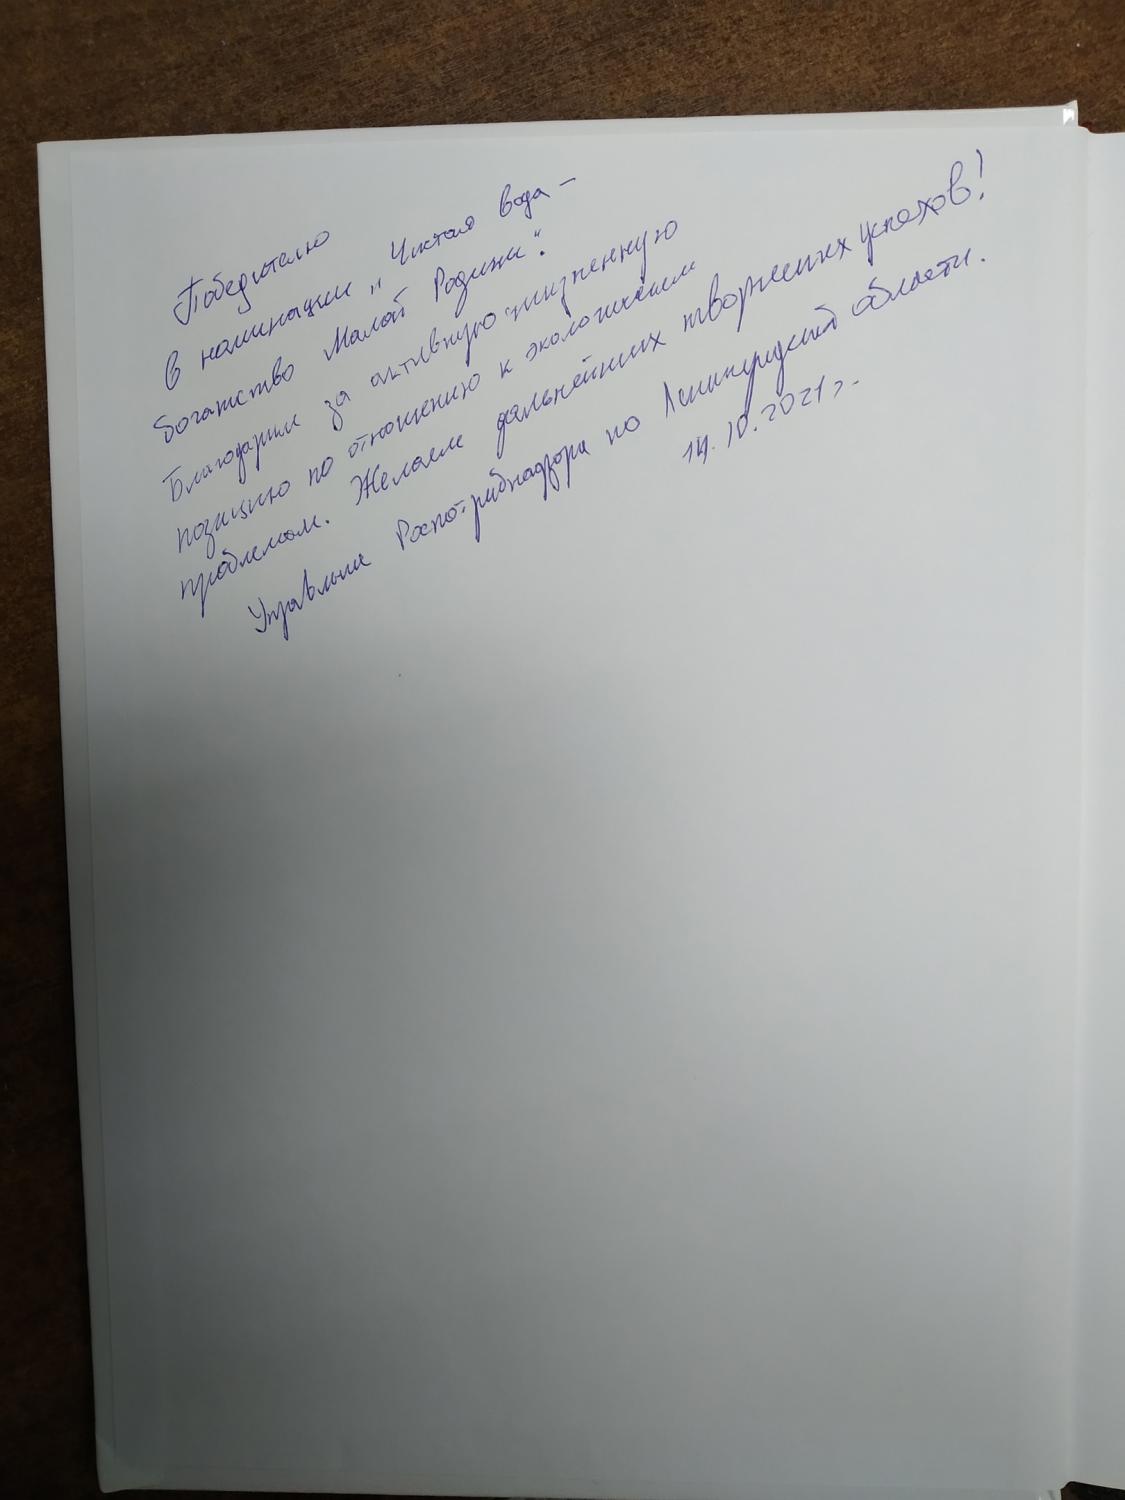 Победителю
в номинации „Чистая вода –
богатство Малой Родины".
Благодарим за активную жизненную
позицию по отношению к экологическим
проблемам. Желаем дальнейших творческих успехов!
Управление Роспотребнадзора по Ленинградской области.
14.10.2021г.